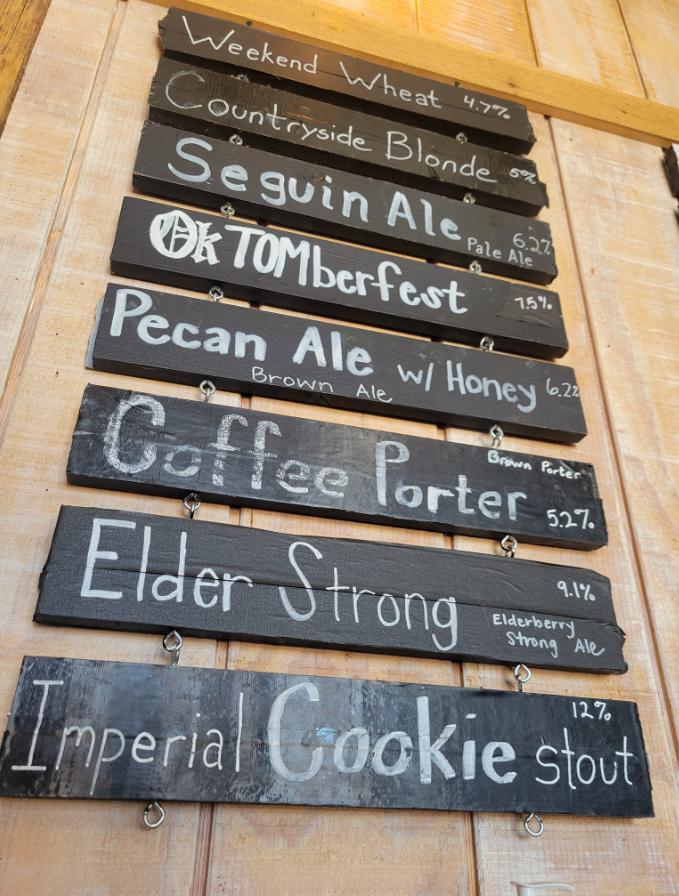 Weekend Wheat 4.7%
Countryside Blonde 5%
Seguin Ale 6.2%
Pale Ale
OkTOMberfest 7.5%
Pecan Ale w/ Honey 6.2%
Brown Ale
Coffee Porter
Brown Porter
5.2%
Elder Strong 9.1%
Elderberry
Strong Ale
Imperial Cookie stout
12%